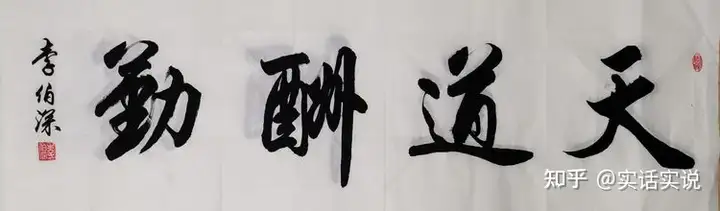 天道酬勤
李伯深
知乎 @实话实说